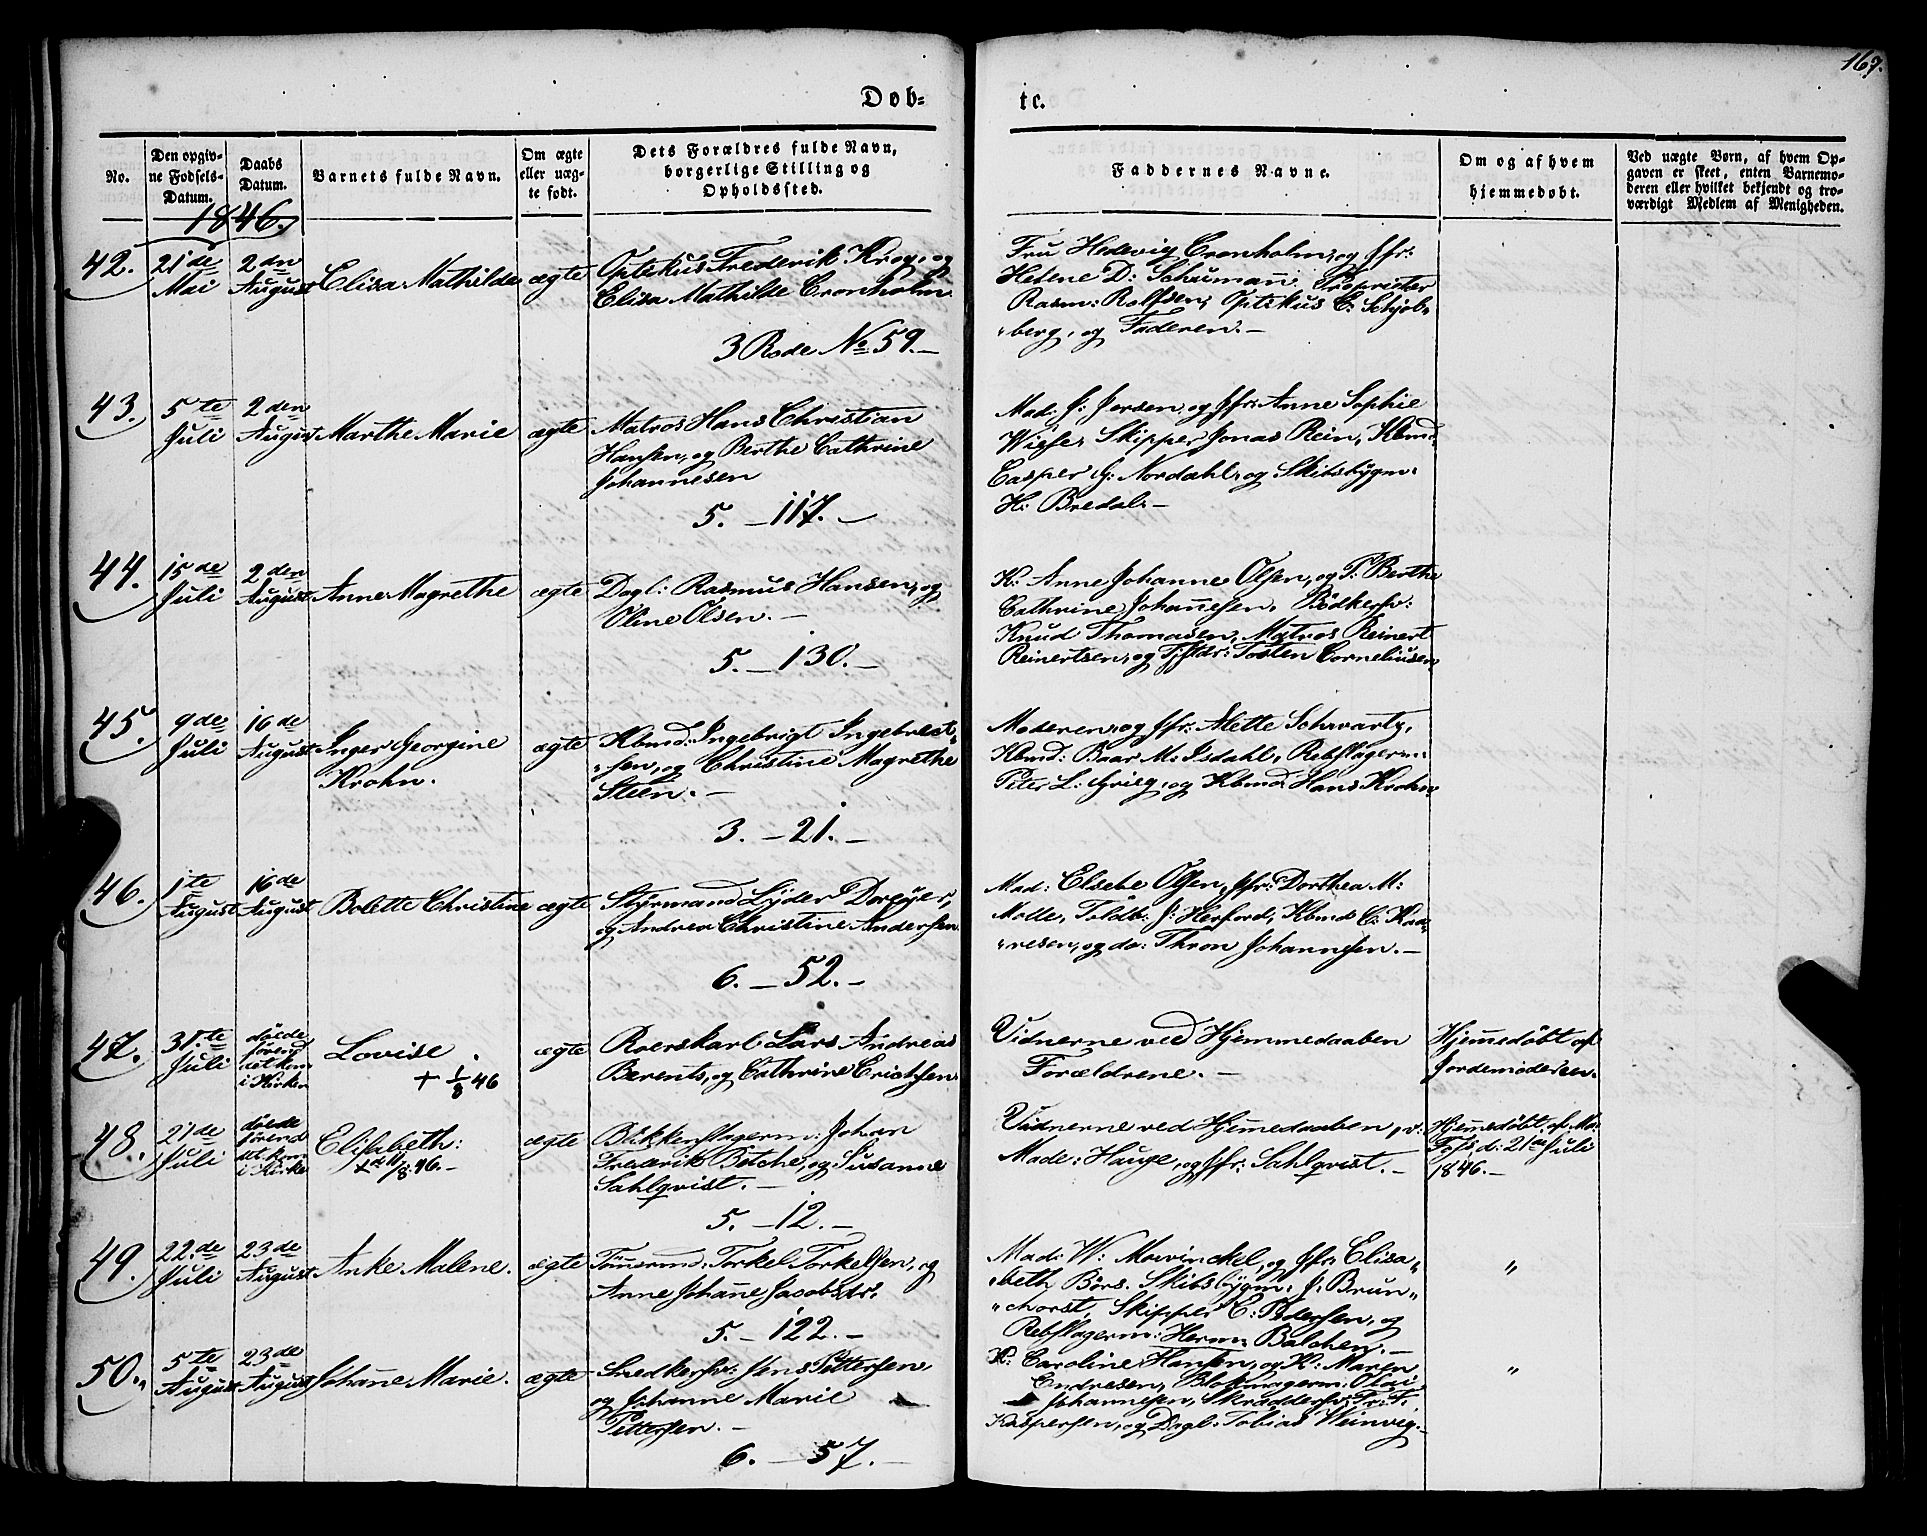 167.
Døb-
te.
No.
Den opgiv-
ne Fødsels-
Datum.
Daabs
Datum.
Barnets fulde Navn.
Om ægte
eller uæg-
te født.
Dets Forældres fulde Navn,
borgerlige Stilling og
Opholdssted.
Faddernes Navne.
Om og af hvem
hjemmedøbt.
Ved uægte Børn, af hvem Op-
gaven er skeet, enten Barnemo-
deren eller hvilket bekjendt og tro-
værdigt Medlem af Menigheden.
1846.
42.
21de
Mai
2den
August
Elisa Mathilde
ægte
Optikus Frederik Krog, og
Elisa Mathilde Cronholm
3 Rode No 59.-
Fru Hedevig Cronholm, og Jfr:
Helene D: Schumann, Proprietær
Rasm: Rolfsen, Optikus C: Schjøt-
berg, og Faderen.-
43.
5te
Juli
2den
August
Marthe Marie
ægte
Matros Hans Christian
Hansen, og Berthe Cathrine
Johannesen
5. - 117.-
Mad: J: Jersen, og Jfr: Anne Sophie
Wiese, Skipper Jonas Rein, Kbmd
Casper G: Nordahl, og Skibsbygm:
H: Bredal.-
44.
15de
Juli
2den
August
Anne Magrethe
ægte
Dagl: Rasmus Hansen, og
Oline Olsen.-
5. - 130.-
K: Anne Johanne Olsen, og P: Berthe
Cathrine Johannesen, Bødkersv:
Knud Thomasen, Matros Reinert
Reinertsen, og Tjstdr: Tosten Corneliusen
45.
9de
Juli
16de
August
Inger Georgine
Krohn.
ægte
Kbmd: Ingebrigt Ingebrect-
sen, og Christine Magrethe
Steen.-
3. - 21.-
Moderen, og Jfr: Mette Schwartz,
Kbmd: Baar M: Isdahl, Rebslagerm:
Peter L: Grieg, og Kbmd: Hans Krohn
46.
1te
August
16de
August
Bolette Christine
ægte
Styrmand Lyder Dreyer,
og Andrea Christine Andersen
6. - 52.-
Mad: Elsebe Olsen, Jfr: Dorthea M:
Molle, Toldb: J: Herford, Kbmd C: Kaa-
resen, og do: Thron Johannesen.-
47.
31te
Juli
døde
førend
det kom
i Kirken
Lovise
+ 1/8 46
ægte
Roerskarl Lars Andreas
Berents, og Cathrine Erichsen
Vidnerne ved Hjemmedaaben
Forældrene.-
Hjemedøbt af
Jordemoderen.
48.
21de
Juli
døde
førend
det kom
i Kirke
Elisabeth:
+ d 11/8 46.-
ægte
Blikkenslagerm: Johan
Frederik Botche, og Susanne
Sahlqvist.-
5. - 12.-
Vidnerne ved Hjemedaaben, v:
Made: Hauge, og Jfr: Sahlqvist.-
Hjemedøbt af
d: 21de Juli
1846.-
49.
22de
Juli
23de
August
Anke Malene.
ægte
Tømermd: Torkel Torkelsen, og
Anne Johane Jacobsdr:
5. - 122.-
Mad: W: Mowinckel, og Jfr: Elisa-
beth Børs, Skibsbygm: J: Brun-
chorst, Skipper C: Pedersen, og
Rebslagerm: Herm: Balchen.-
"
50.
5te
August
23de
August
Johane Marie.
ægte
Snedkersv: Jens Pettersen
og Johanne Marie
Pettersen.-
6. - 57.-
K: Caroline Hansen, og K: Maren
Endresen, Blokmagerm: Olai
Johannesen, Skræddersv: Fr: F:
Kaspersen, og Dagl: Tobias Weinveg.-
"